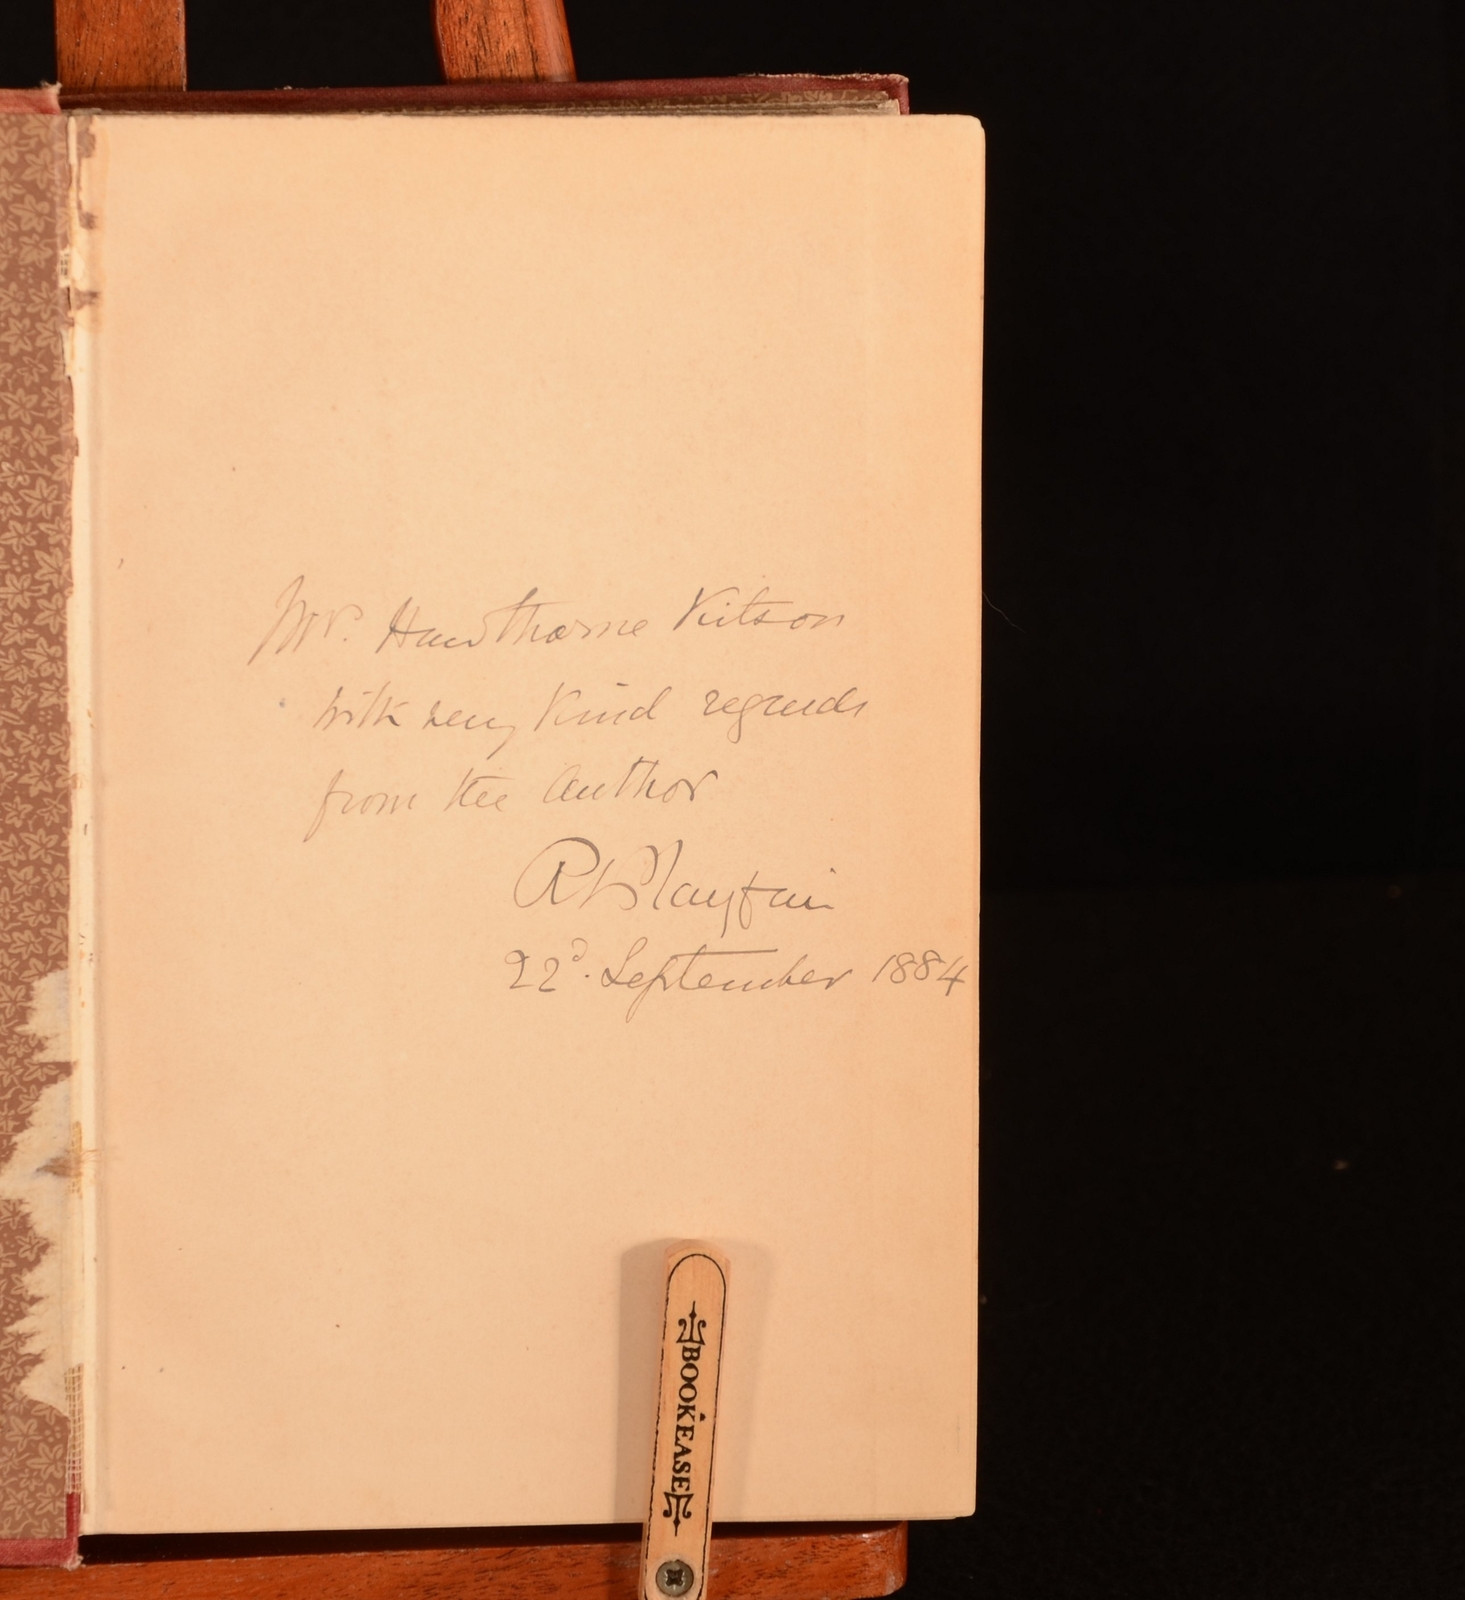 Mr. Hawthorne Kitson
with very kind regards
from the Author
RLPlayfair
22d. September 1884
BOOKEASE